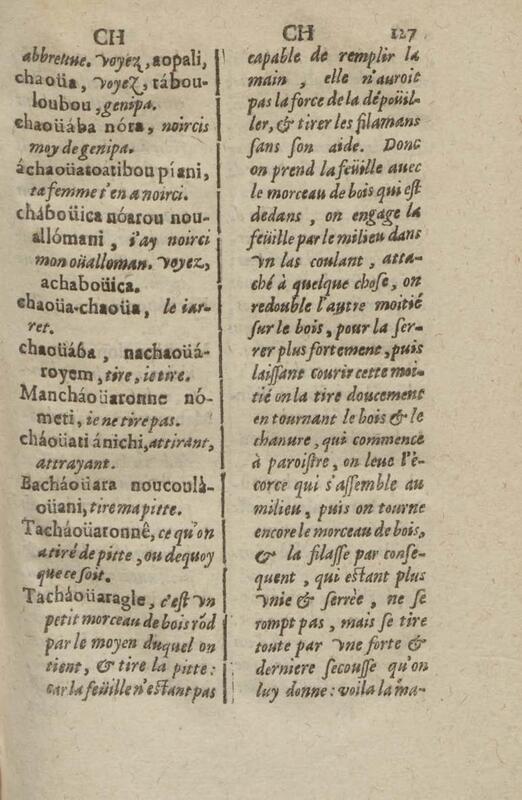 CH
abbreuue. voyez, aopali,
chaoüa, voyez, tábou-
loubou, genipa.
chaoüába nóra, noircis
moy de genipa.
áchaoüatoatibou píani,
ta femme t'en a noirci.
cháboüica nóarou nou-
allómani, i'ay noirci
mon oüalloman. voyez,
achaboüica.
chaoüa-chaoüa, le iar-
ret.
chaoüába, nachaoüá-
royem, tire, ie tire.
Mancháoüaronne nó-
meti, ie ne tire pas.
cháoüati ánichi, attirant,
attrayant.
Bacháoüara noucoulà-
oüani, tire ma pitte.
Tacháoüaronnê, ce qu'on
a tiré de pitte, ou dequoy
que ce soit.
Tacháoüaragle, c'est vn
petit morceau de bois rõd
par le moyen duquel on
tient, & tire la pitte:
car la feüille n'estant pas
CH 127
capable de remplir la
main, elle n'auroit
pas la force de la dépoüil-
ler, & tirer les filamans
sans son aide. Donc
on prend la feüille auec
le morceau de bois qui est
dedans, on engage la
feüille par le milieu dans
vn las coulant, atta-
ché à quelque chose, on
redouble l'autre moitié
sur le bois, pour la ser-
rer plus fortement, puis
laissant courir cette moi-
tié on la tire doucement
en tournant le bois & le
chanure, qui commence
à paroistre, on leue l'é-
corce qui s'assemble au
milieu, puis on tourne
encore le morceau de bois,
& la filasse par conse-
quent, qui estant plus
vnie & serrée, ne se
rompt pas, mais se tire
toute par vne forte &
derniere secousse qu'on
luy donne: voila la ma-